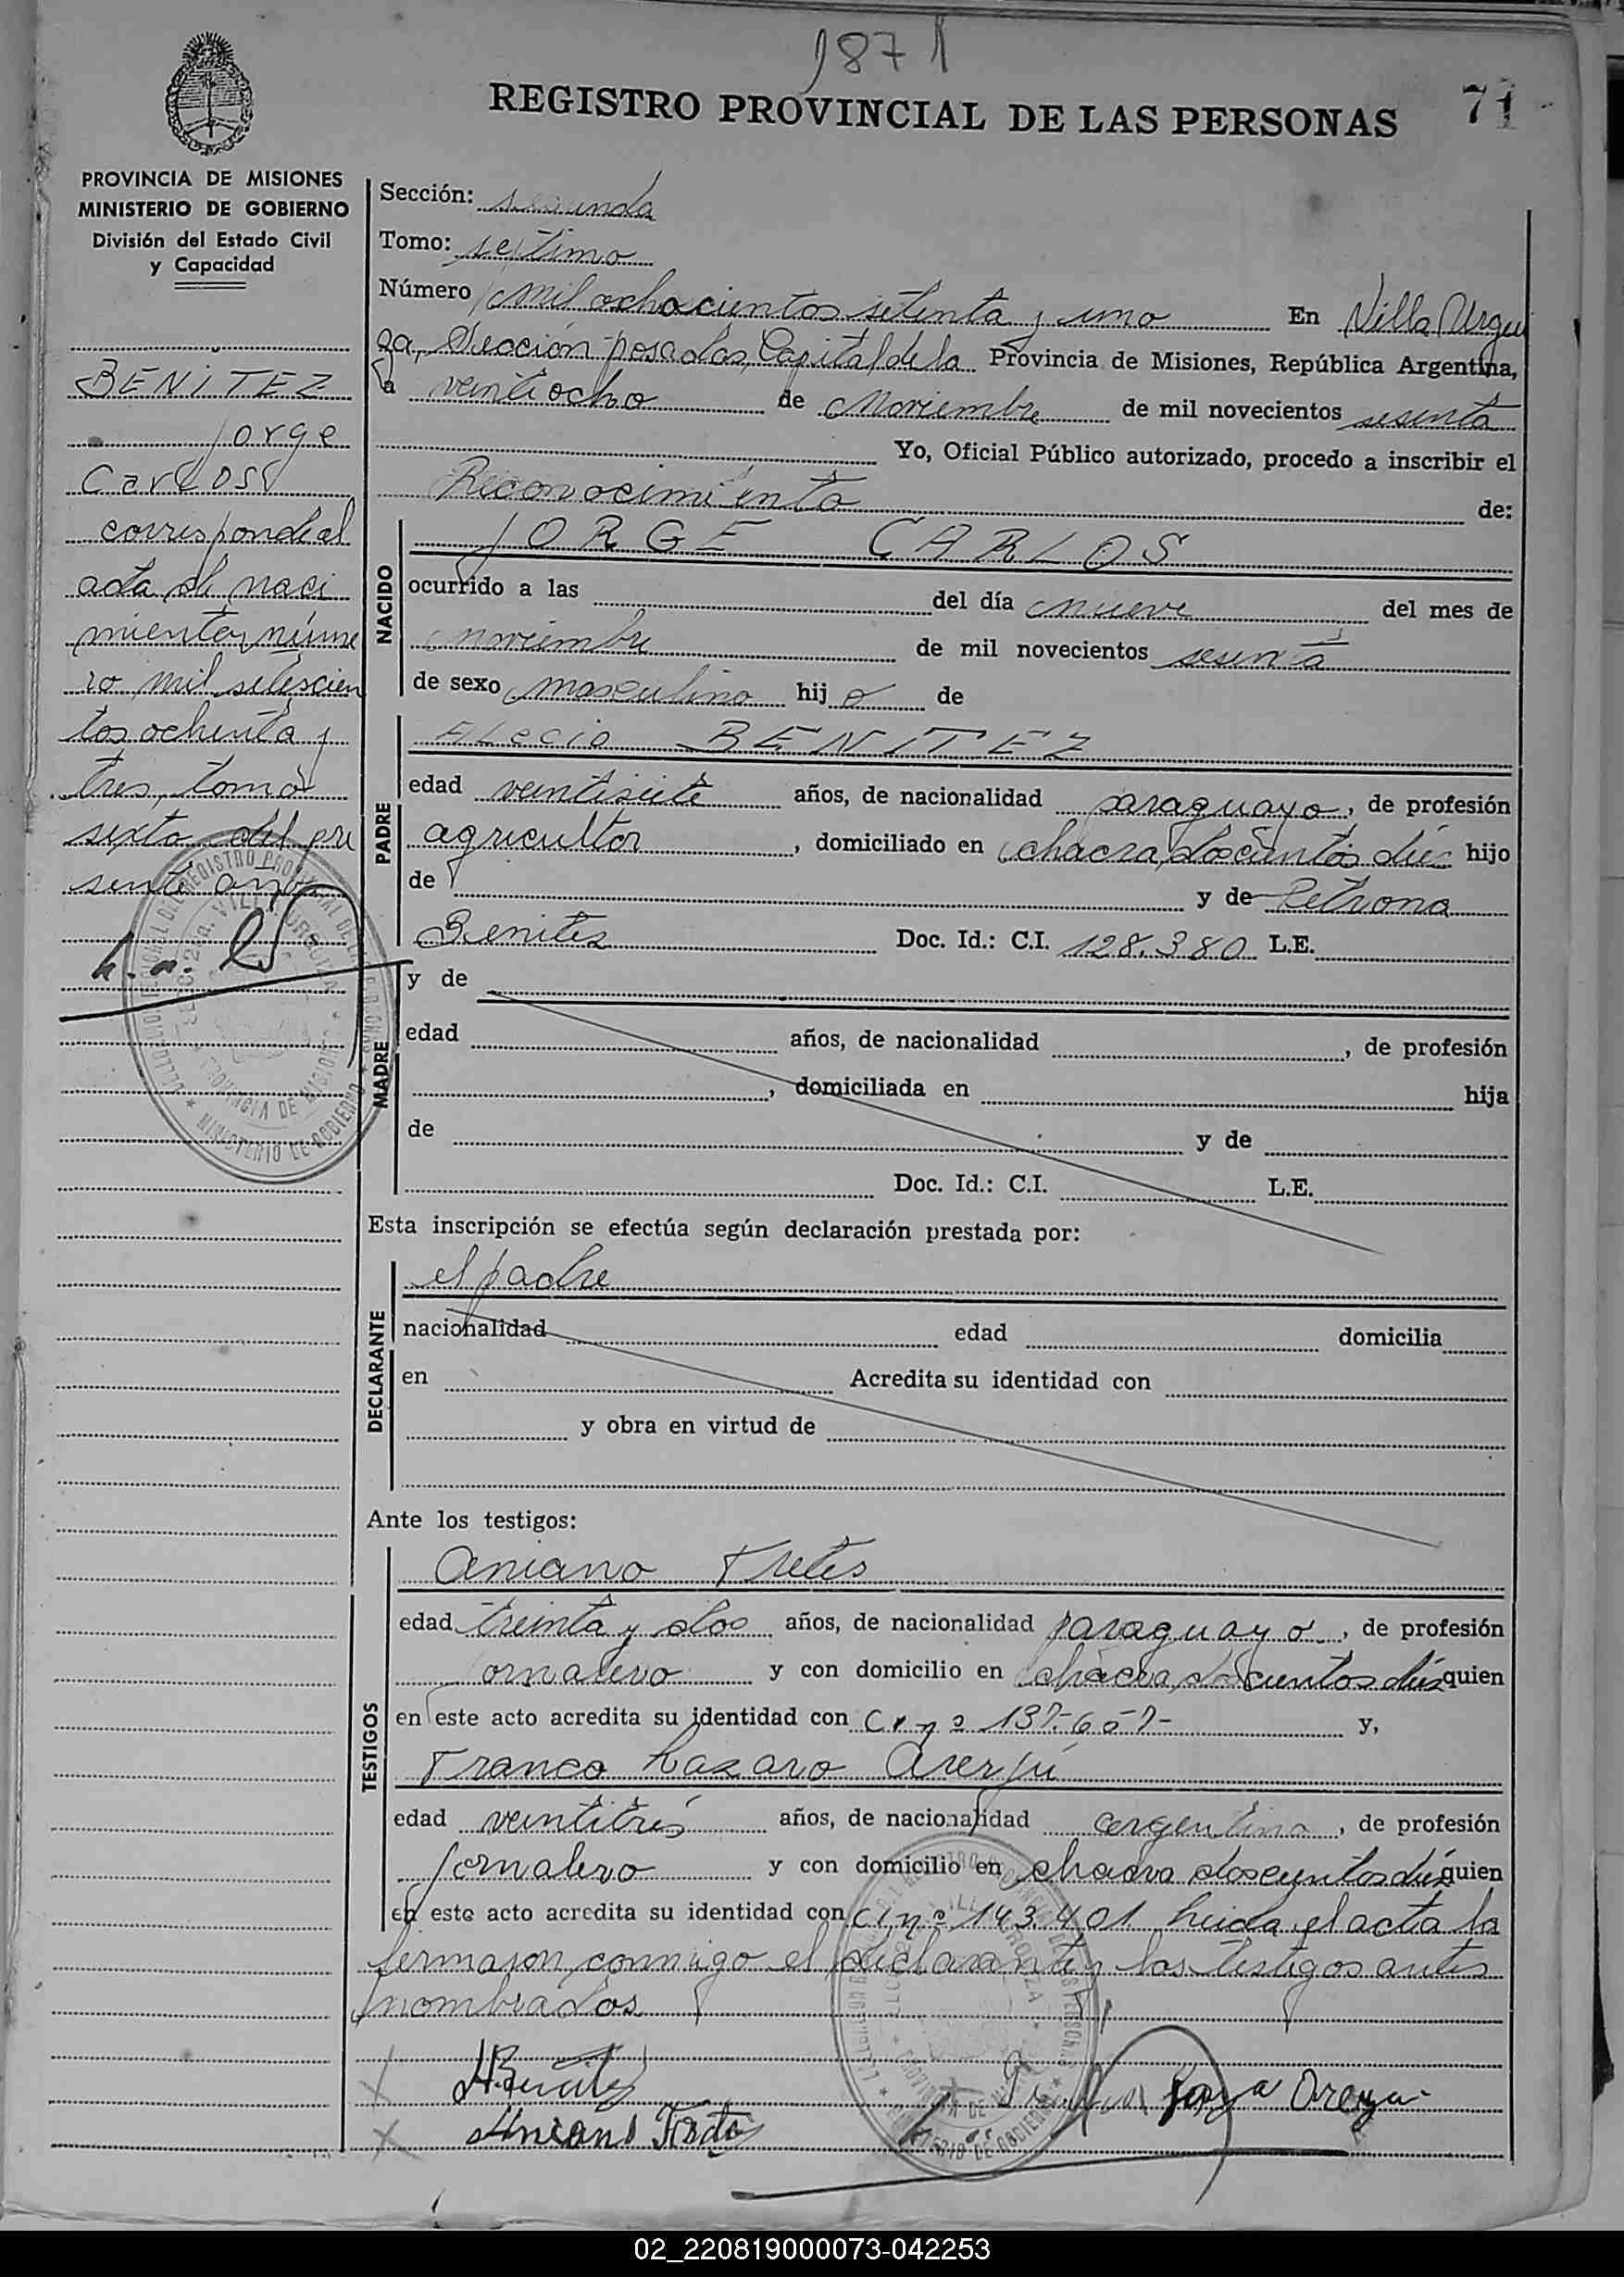 1871
REGISTRO PROVINCIAL DE LAS PERSONAS
71
PROVINCIA DE MISIONES
MINISTERIO DE GOBIERNO
División del Estado Civil
y Capacidad
BENITEZ
Jorge
Carlos
corresponde al
acta de naci
miento, núme
ro mil setescien
tos ochenta y
tres, tomo
sexto del pre
sente año
Sección: segunda
Tomo: septimo
Número mil ochocientos setenta y uno En Villa Urqui
za, Sección posadas, Capital de la Provincia de Misiones, República Argentina,
a veintiocho de Noviembre de mil novecientos sesenta
Yo, Oficial Público autorizado, procedo a inscribir el
Reconocimiento de:
NACIDO
JORGE CARLOS
ocurrido a las del día nueve del mes de
noviembre de mil novecientos sesenta
de sexo masculino hijo de
PADRE
BENITEZ
edad veintisiete años, de nacionalidad paraguayo, de profesión
agricultor, domiciliado en chacra doscientos diez hijo
de y de Petrona
Benites Doc. Id.: C.I. 128.380 L.E.
MADRE
y de
edad años, de nacionalidad , de profesión
, domiciliada en hija
de y de
Doc. Id.: C.I. L.E.
Esta inscripción se efectúa según declaración prestada por:
DECLARANTE
el padre
nacionalidad edad domicilia
en Acredita su identidad con
y obra en virtud de
Ante los testigos:
TESTIGOS
Aniano Fretes
edad treinta y dos años, de nacionalidad paraguayo, de profesión
jornalero y con domicilio en chacra doscientos diez quien
en este acto acredita su identidad con y,
Franco Lazaro
edad veintitrés años, de nacionalidad argentina, de profesión
jornalero y con domicilio en chacra doscientos diez quien
en este acto acredita su identidad con CI nº 143.401 Leida el acta la
firmaron conmigo el declarante y los testigos antes
nombrados
Benitez
Aniano Frete
02_220819000073-042253